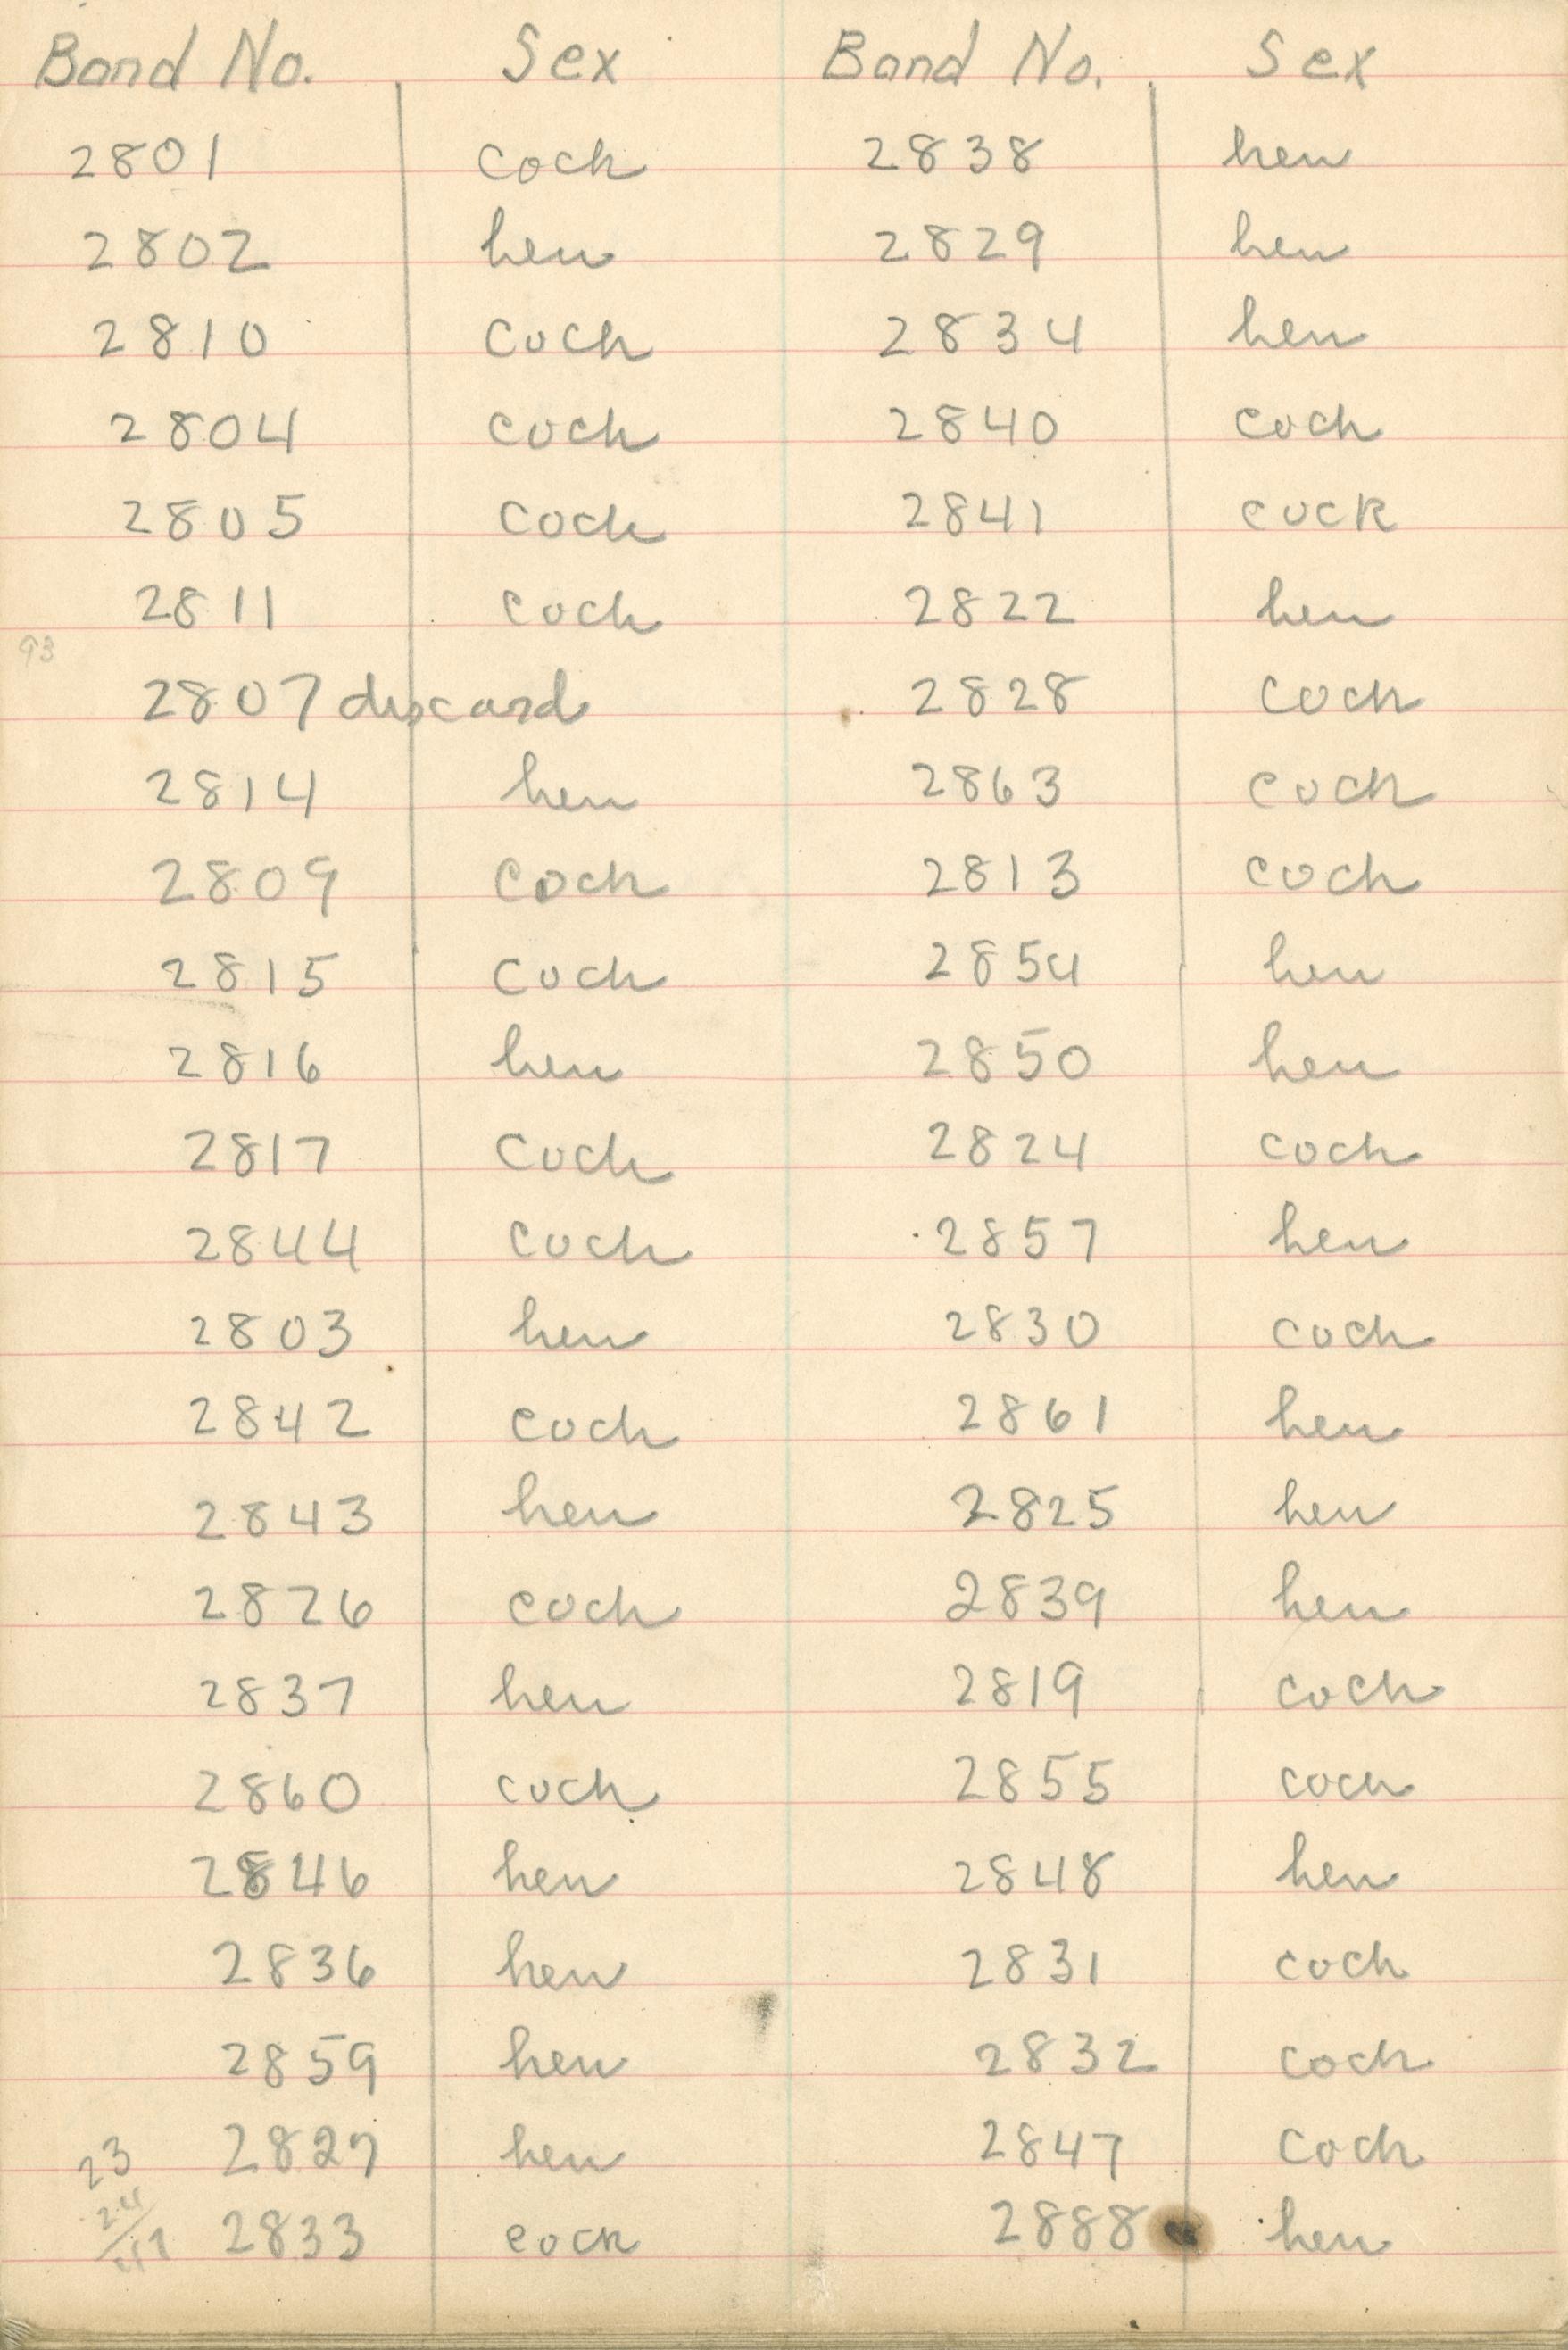 Band No. Sex Band No. Sex
2801 cock 2838 hen
2802 hen 2829 hen
2810 cock 2834 hen
2804 cock 2840 cock
2805 cock 2841 cock
2811 cock 2822 hen
93
2807 discard 2828 cock
2814 hen 2863 cock
2809 cock 2813 cock
2815 cock 2854 hen
2816 hen 2850 hen
2817 cock 2824 cock
2844 cock 2857 hen
2803 hen 2830 cock
2842 cock 2861 hen
2843 hen 2825 hen
2826 cock 2839 hen
2837 hen 2819 cock
2860 cock 2855 cock
2846 hen 2848 hen
2836 hen 2831 cock
2859 hen 2832 cock
23 2827 hen 2847 cock
24
47 2833 cock 2888 hen